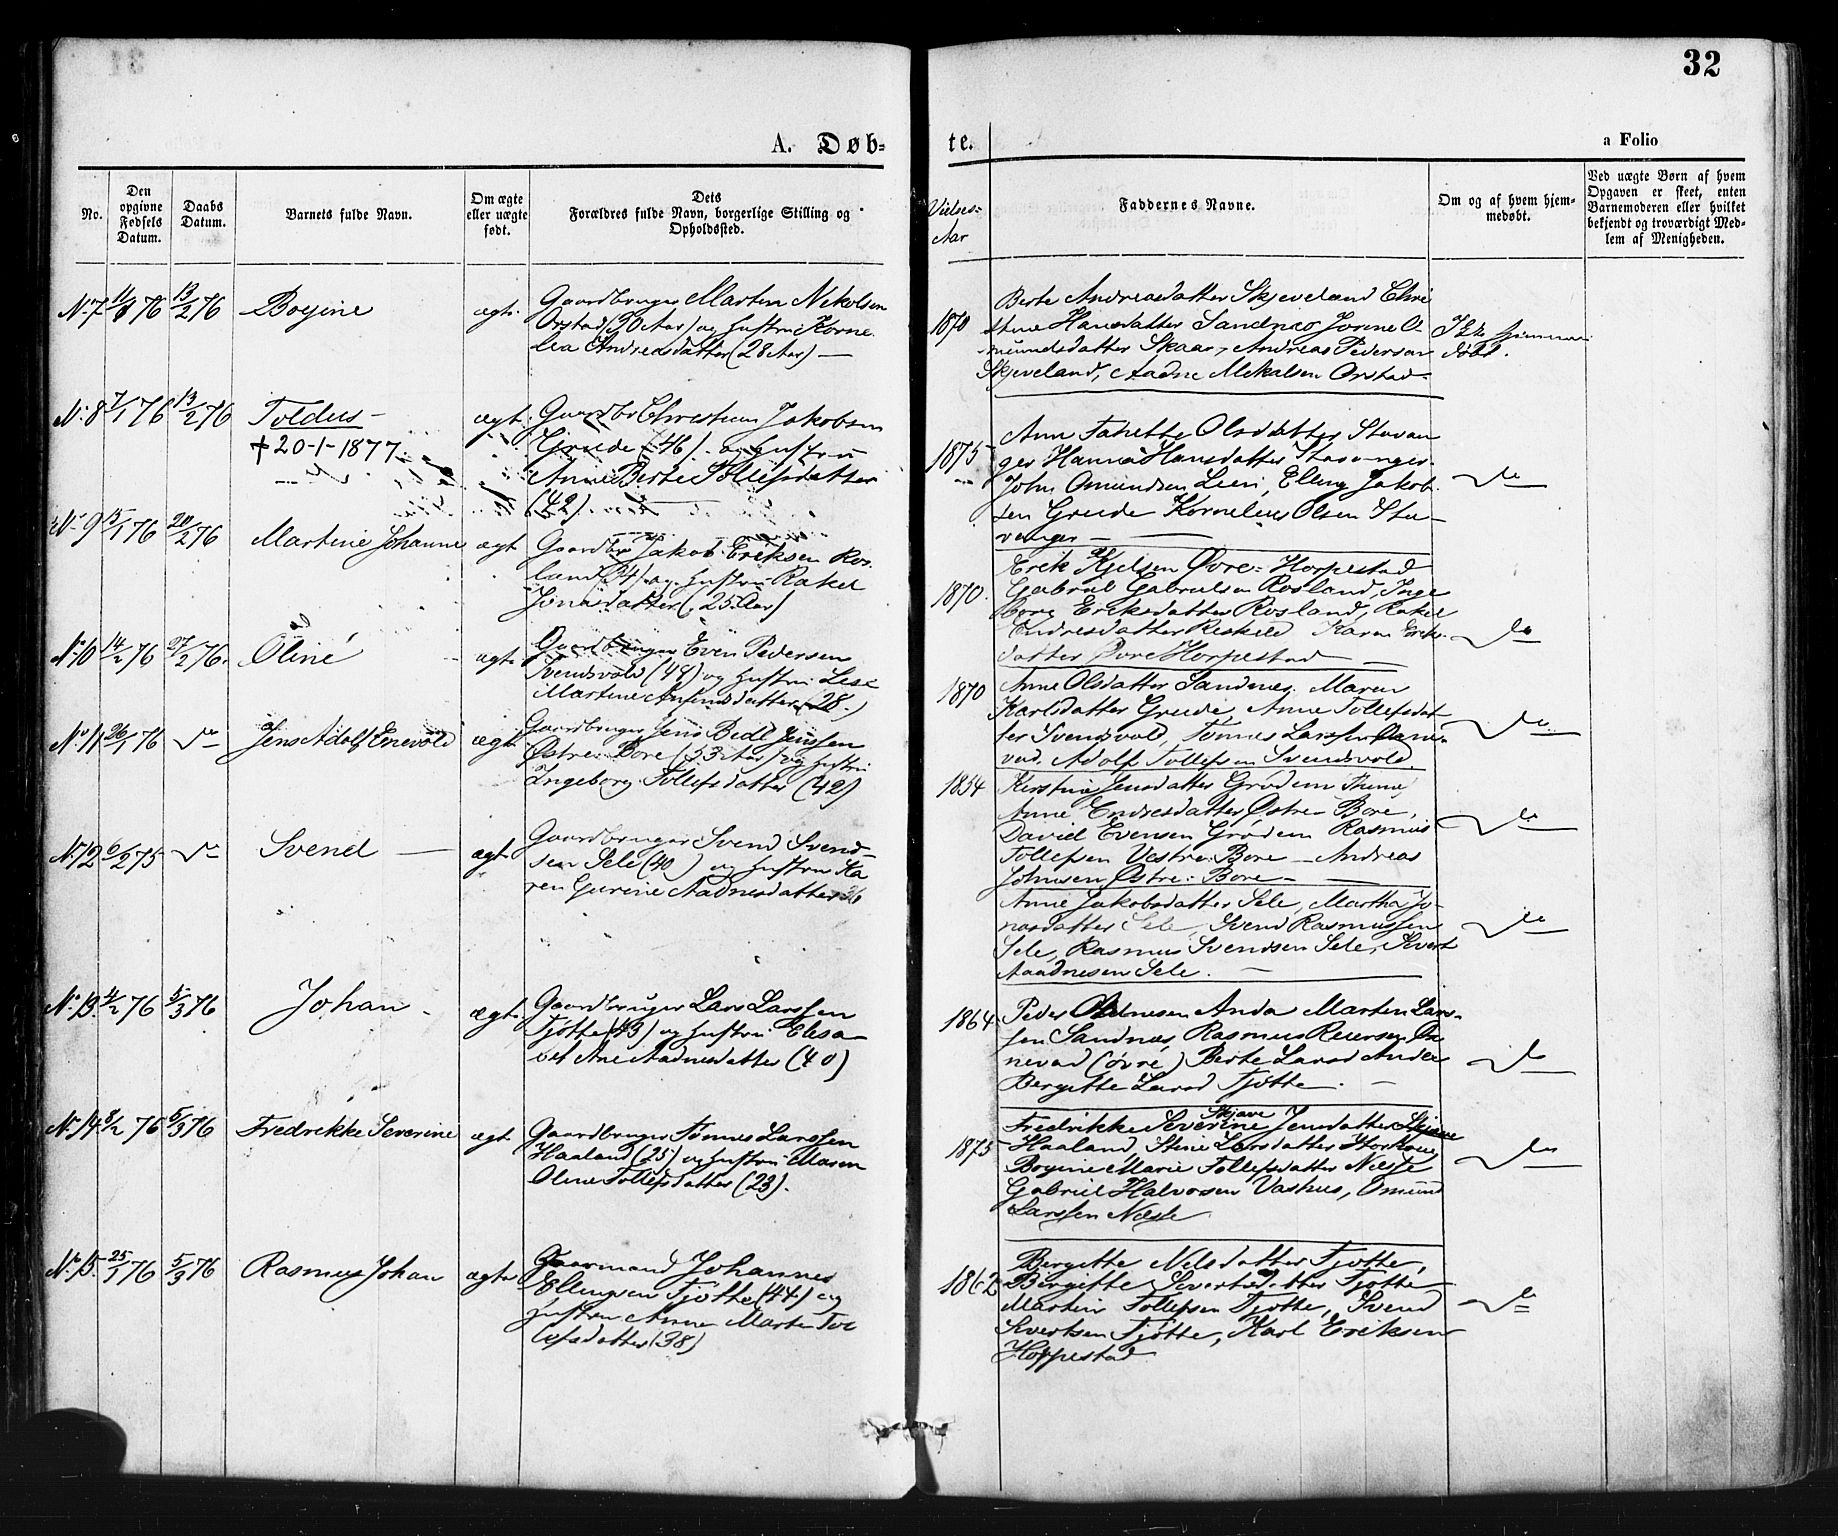 32
A. Døb-
te.
a Folio
No.
Den opgivne Fødsels Datum.
Daabs Datum.
Barnets fulde Navn.
Om ægte eller uægte født.
Dets Forældres fulde Navn, borgerlige Stilling og Opholdssted.
Vielses-Aar
Faddernes Navne.
Om og af hvem hjemmedøbt.
Ved uægte Børn af hvem Opgaven er skeet, enten Barnemoderen eller hvilket bekjendt og troværdigt Medlem af Menigheden.
No 7 11/1 76 13/2 76 Bogine ægte
Gaardbruger Marten Nekolsen
Orstad (30 Aar) og Hustru Korne-
lia Andreasdatter (28 Aar) —
1870
Berte Andreasdatter Skjeveland Chri
stine Hansdatter Sandnes Jorine O-
mundsdatter Skaar, Andreas Pedersen
Skjeveland, Aadne Mekalsen Orstad
Ikke hjemme
døbt.
No 8 7/1 76 13/2 76 Toldus — ægt.
† 20-1-1877
Gaardbr Christian Jakobsen
Grude (46) og Hustru
Anne Berte Tollefsdatter
(42)
1875
Ane Tahette Olsdatter Stavan
ger Hanna Hansdatter Stavanger
John Omundsen Leen, Elling Jakob
sen Grude Kornelius Olsen Sta-
vanger —
do
No 9 15/1 76 20/2 76 Martine Johanne ægt
Gaardbr Jakob Eriksen Ros-
land (34) og Hustru Rakel
Jonasdatter (25 Aar)
1870.
Erik Kjelsen Øvre-Horpestad
Gabriel Gabrielsen Rosland, Inge
borg Eriksdatter Rosland, Rakel
Endresdatter Reskeld Karen Eriks
datter Øvre Horpestad —
do
No 10 14/2 76 27/2 76. Oline ægte
Gaardbruger Even Pedersen
Svendsvold (44) og Hustru Lise
Martine Anfindsdatter (28.)
1870
Anne Olsdatter Sandnes. Maren
Karlsdatter Grude, Anne Tollefsdat-
ter Svendsvold, Tønnes Larssen Ønne-
vad, Adolf Tollefsen Svendsvold.
do
No 11 26/1 76 do Jens Adolf Enevold ægt
Gaardbruger Jens Bedt Jenssen
Østre Bore (53 Aar) og Hustru
Ingeborg Tollefsdatter (42)
1854
Kirstine Jensdatter Grødem
Anne Endresdatter Østre Bore,
David Evensen Grødem Rasmus
Tollefsen Vestre Bore — Andreas
Johnsen Østre Bore —
do
No 12 6/2 75 do Svend — ægt
Gaardbruger Svend Svend-
sen Sele (40) og Hustru Ka
ren Gurine Aadnesdatter 36
Anne Jakobsdatter Sele, Martha Jo-
nasdatter Sele, Svend Rasmussen
Sele, Rasmus Svendsen Sele, Sivert
Aadnesen Sele. —
do
No 13. 4/2 76 5/3 76 Johan ægte
Gaardbruger Lars Larssen
Tjøtte (43) og Hustru Elesa-
bet Ane Aadnesdatter (40)
1864
Peder Aadnesen Anda Marten Lars-
sen Sandnes Rasmus Reiersen Øn
nevad (øvre) Berte Larsd Anda
Bergitte Larsd Tjøtte. —
do
No 14 8/2 76 5/3 76 Fredrikke Severine ægt
Gaardbruger Tønnes Larssen
Haaland (25) og Hustru Maren
Oline Tollefsdatter (23).
1875
Skjæve
Fredrikke Severine Jensdatter Skjæve
Haaland, Stine Larsdatter Storhoug
Bogine Marie Tollefsdatter Næste
Gabriel Halvorsen Vashus, Omund
Larssen Næste
do
No 15. 25/1 76 5/3 76 Rasmus Johan ægte
Gaarmand Johannes
Ellingsen Tjøtte (44) og
Hustru Anne Marte Tol
lefsdatter (38)
1862
Bergitte Nelsdatter Tjøtte,
Bergitte Sivertsdatter Tjøtte
Martin Tollefsen Tjøtte, Svend
Sivertsen Tjøtte, Karl Eriksen
Hoppestad
do